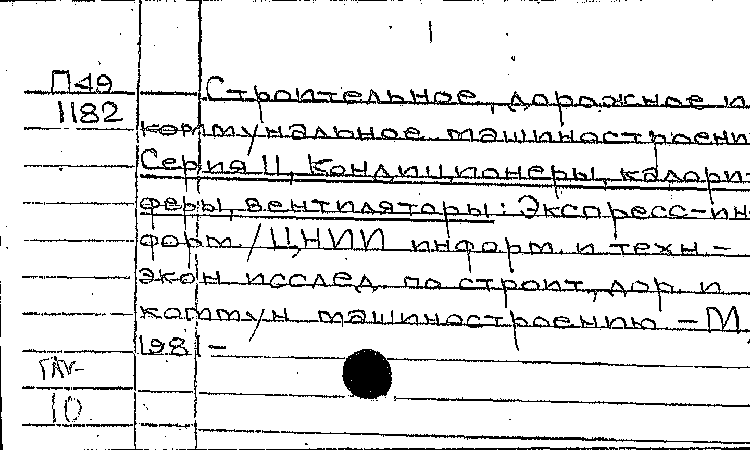 П49
1182
Строительное, дорожное и
коммунальное машиностроени
Серия II, Кондиционеры, калори
феры, вентиляторы: Экспресс-ин
форм. / ЦНИИ информ. и техн-
экон исслед. по строит., дор. и
коммун машиностроению – М,
1981–
10